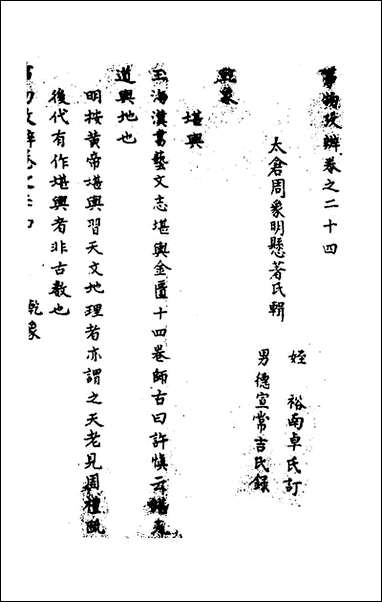 事物考辨卷之二十四
太倉周象明懸著氏輯
姪 裕南卓氏訂
男德宣常吉氏錄
乾象
堪輿
玉海漢書藝文志堪輿金匱十四卷師古曰許慎云堪天
道輿地也
明按黃帝堪輿習天文地理者亦謂之天老見周禮疏
後代有作堪輿者非古數也
事物考辨卷之二十四 乾象